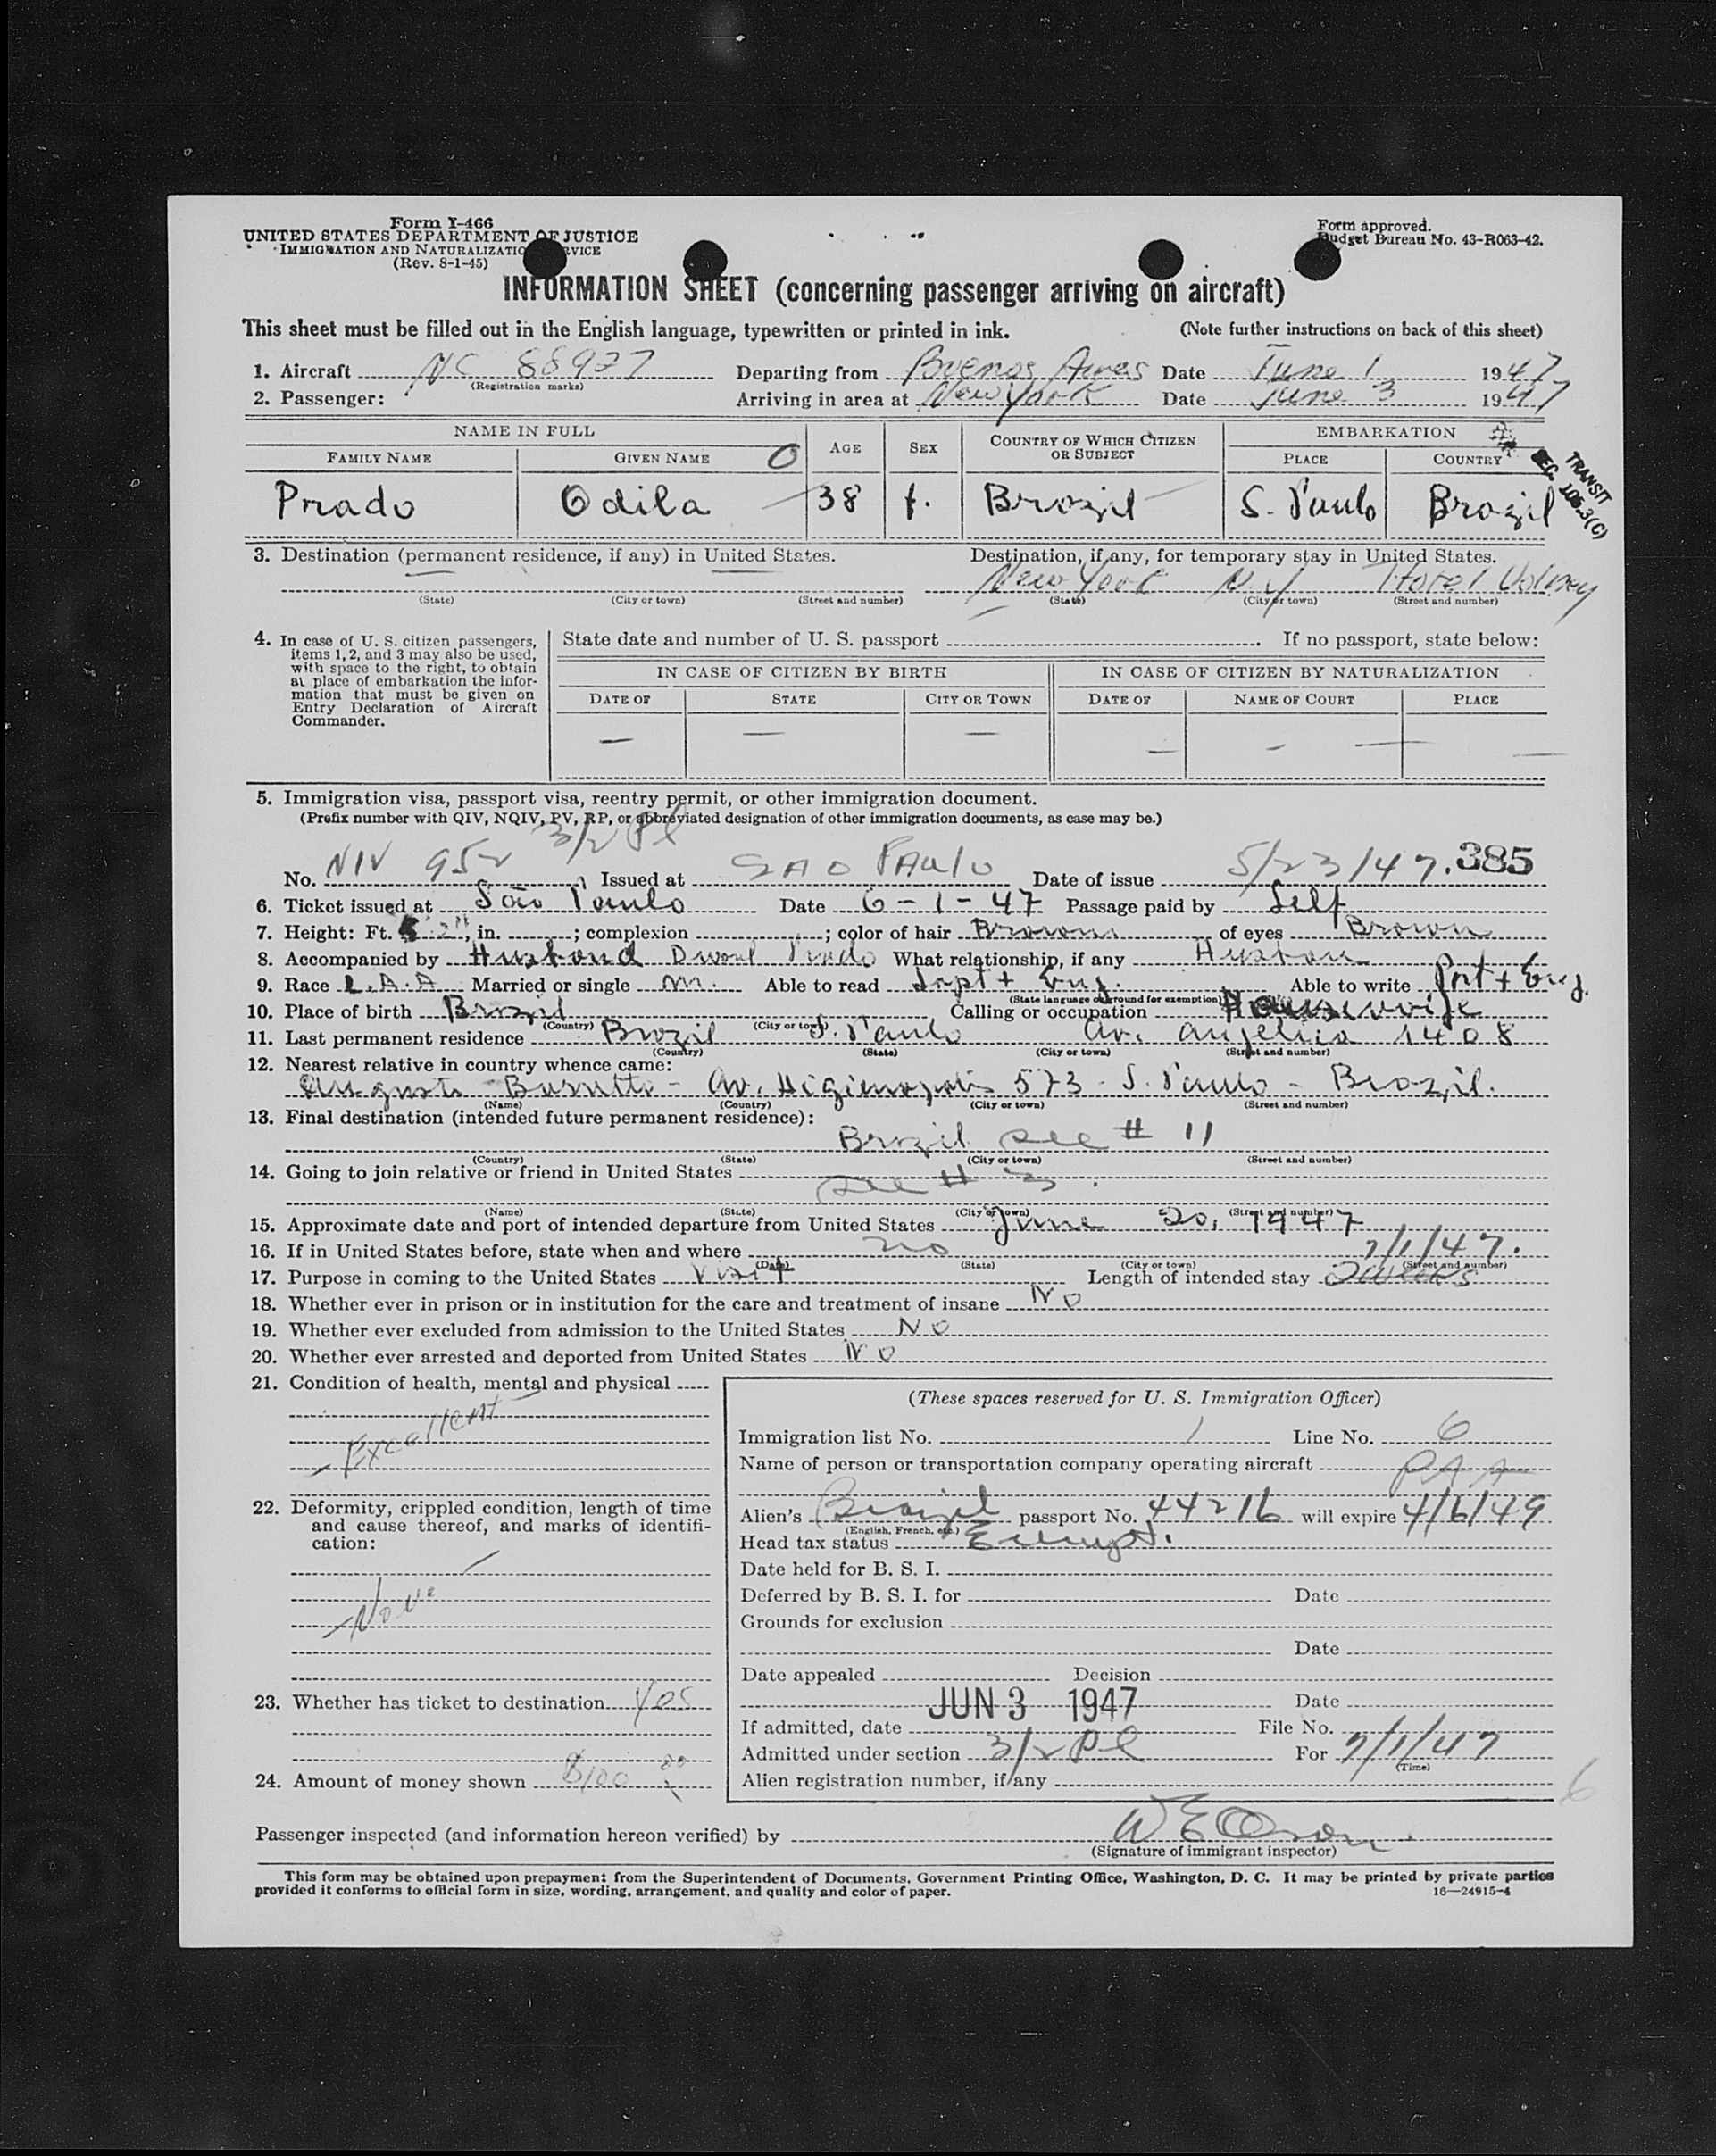 Form I-466
UNITED STATES DEPARTMENT OF JUSTICE
IMMIGRATION AND NATURALIZATION SERVICE
(Rev. 8-1-45)
Form approved.
Budget Bureau No. 43-R063-42.
INFORMATION SHEET (concerning passenger arriving on aircraft)
This sheet must be filled out in the English language, typewritten or printed in ink. (Note further instructions on back of this sheet)
1. Aircraft NC 88927 Departing from Buenos Aires Date June 1 1947
(Registration marks)
2. Passenger: Arriving in area at New York Date June 3 1947
NAME IN FULL AGE SEX COUNTRY OF WHICH CITIZEN OR SUBJECT EMBARKATION
FAMILY NAME GIVEN NAME PLACE COUNTRY
TRANSIT
SEC. 105.3(C)
Prado Odila 38 f. Brazil S. Paulo Brazil
3. Destination (permanent residence, if any) in United States. Destination, if any, for temporary stay in United States.
New York N.Y Hotel Volney
(State) (City or town) (Street and number) (State) (City or town) (Street and number)
4. In case of U. S. citizen passengers, items 1, 2, and 3 may also be used, with space to the right, to obtain at place of embarkation the information that must be given on Entry Declaration of Aircraft Commander.
State date and number of U. S. passport If no passport, state below:
IN CASE OF CITIZEN BY BIRTH IN CASE OF CITIZEN BY NATURALIZATION
DATE OF STATE CITY OR TOWN DATE OF NAME OF COURT PLACE
— — — — - — —
5. Immigration visa, passport visa, reentry permit, or other immigration document.
(Prefix number with QIV, NQIV, PV, RP, or abbreviated designation of other immigration documents, as case may be.)
3/2 Pl
No. NIV 952 Issued at SAO PAulo Date of issue 5/23/47. 385
6. Ticket issued at São Paulo Date 6-1-47 Passage paid by Self
7. Height: Ft. 5 2", in. ; complexion ; color of hair Brown of eyes Brown
8. Accompanied by Husband Prado What relationship, if any Husban
9. Race L.A.A Married or single m. Able to read + Eng. Able to write Port + Eng.
(State language or ground for exemption)
10. Place of birth Brazil Calling or occupation Housewife
(Country) (City or town)
11. Last permanent residence Brazil S. Paulo Av. Angelica 1408
(Country) (State) (City or town) (Street and number)
12. Nearest relative in country whence came:
Barretto - Av. Higienopolis 573 - S. Paulo - Brazil.
(Name) (Country) (City or town) (Street and number)
13. Final destination (intended future permanent residence):
Brazil see # 11
(Country) (State) (City or town) (Street and number)
14. Going to join relative or friend in United States
see # 3.
(Name) (State) (City or town) (Street and number)
15. Approximate date and port of intended departure from United States June 20, 1947
16. If in United States before, state when and where no 7/1/47.
(Date) (State) (City or town) (Street and number)
17. Purpose in coming to the United States Visit Length of intended stay
18. Whether ever in prison or in institution for the care and treatment of insane No
19. Whether ever excluded from admission to the United States No
20. Whether ever arrested and deported from United States No
21. Condition of health, mental and physical
Excellent
22. Deformity, crippled condition, length of time and cause thereof, and marks of identification:
None
23. Whether has ticket to destination Yes
24. Amount of money shown $100 00
(These spaces reserved for U. S. Immigration Officer)
Immigration list No. 1 Line No. 6
Name of person or transportation company operating aircraft PAA
Alien's Brazil passport No. 44216 will expire 4/6/49
(English, French, etc.)
Head tax status Exempt.
Date held for B. S. I.
Deferred by B. S. I. for Date
Grounds for exclusion
Date
Date appealed Decision
Date
If admitted, date JUN 3 1947 File No.
Admitted under section 3/2 Pl For 7/1/47
(Time)
Alien registration number, if any
6
Passenger inspected (and information hereon verified) by
(Signature of immigrant inspector)
This form may be obtained upon prepayment from the Superintendent of Documents, Government Printing Office, Washington, D. C. It may be printed by private parties
provided it conforms to official form in size, wording, arrangement, and quality and color of paper. 16—24915-4